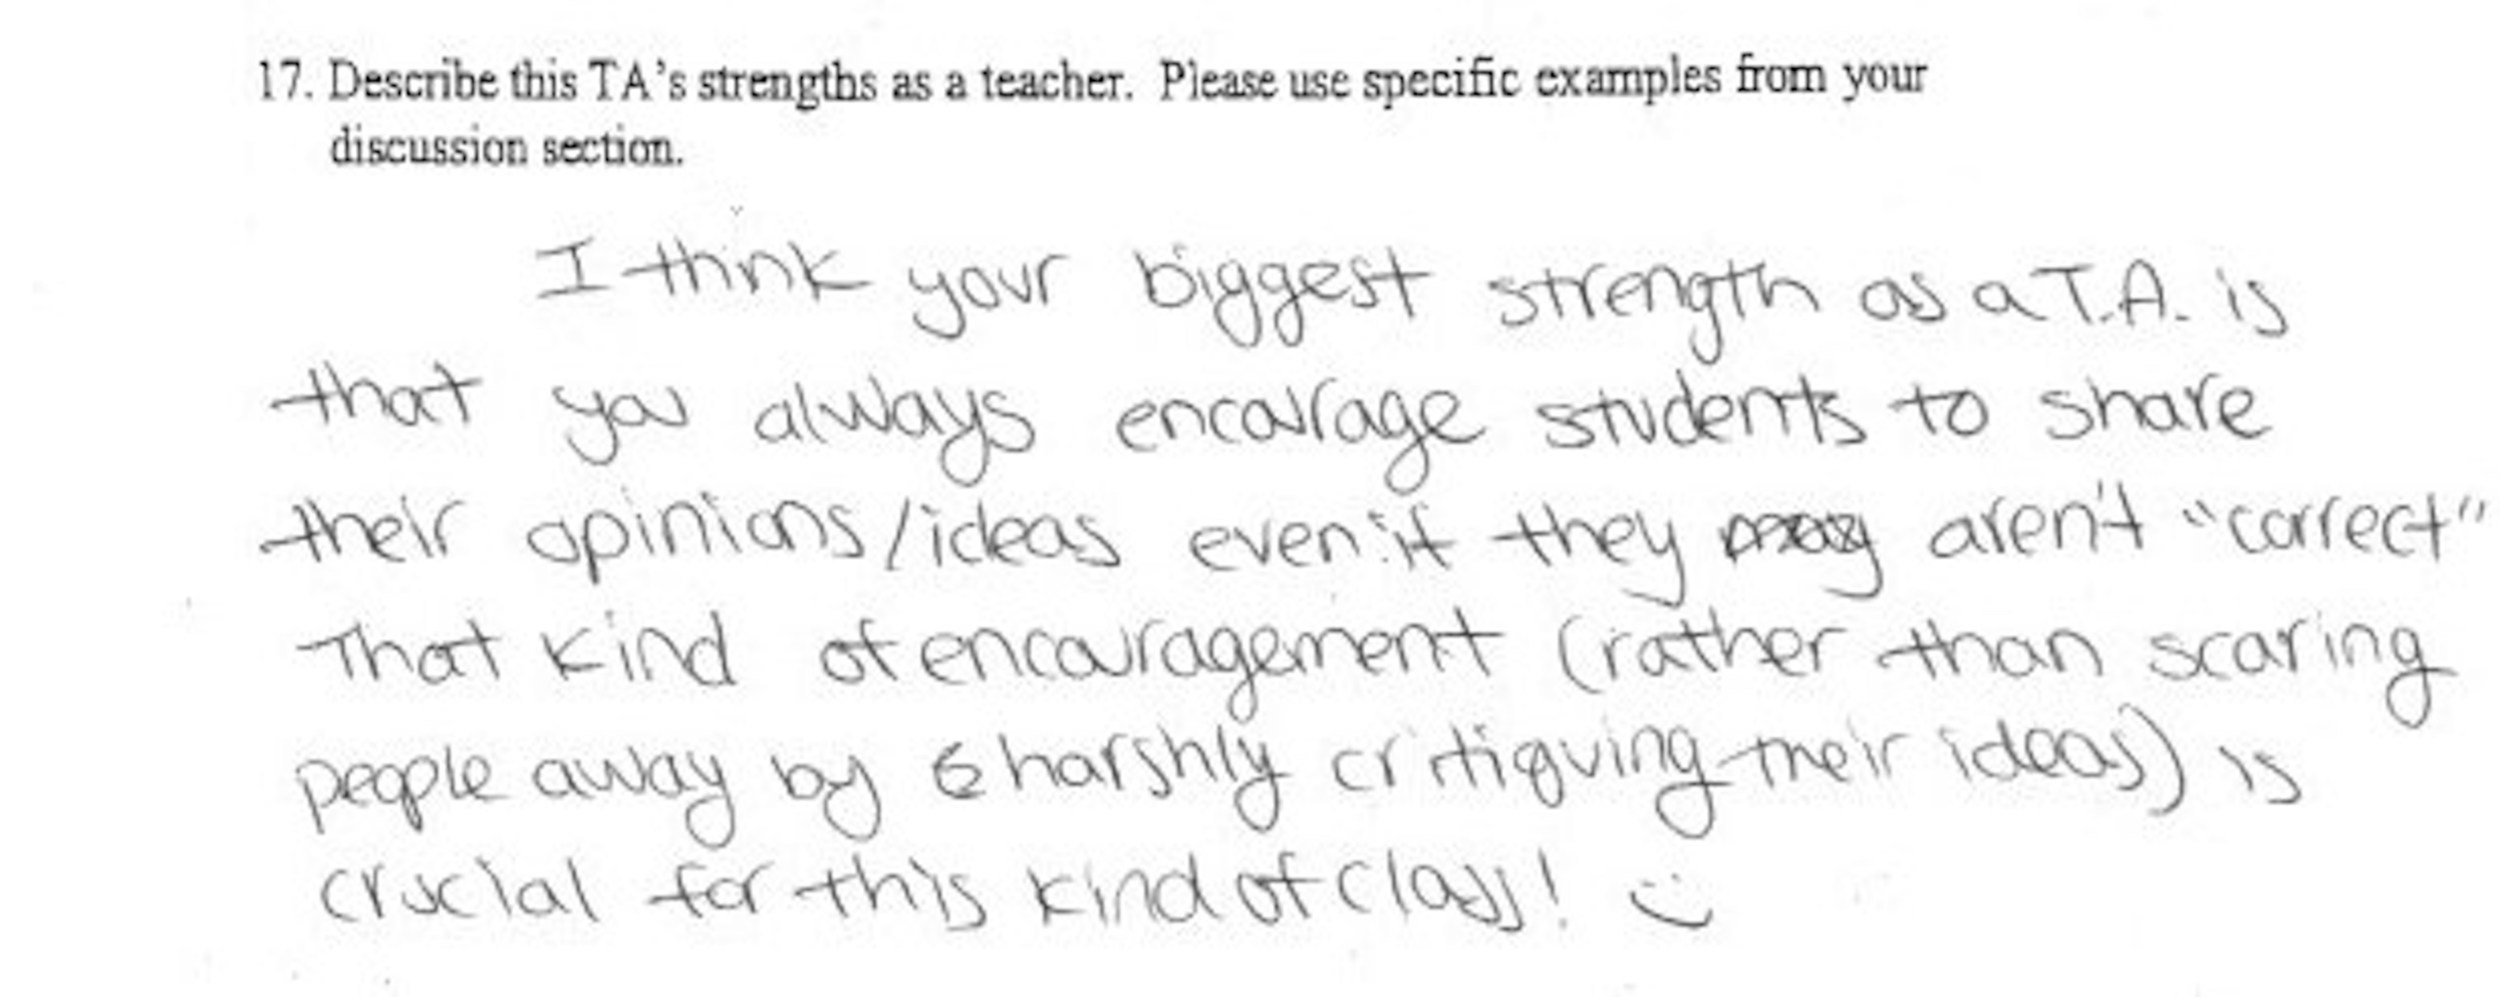 17. Describe this TA's strengths as a teacher. Please use specific examples from your
discussion section.
I think your biggest strength as a T.A. is
that you always encourage students to share
their opinions/ideas even if they may aren't "correct"
That kind of encouragement (rather than scaring
people away by harshly critiquing their ideas) is
crucial for this kind of class! :)